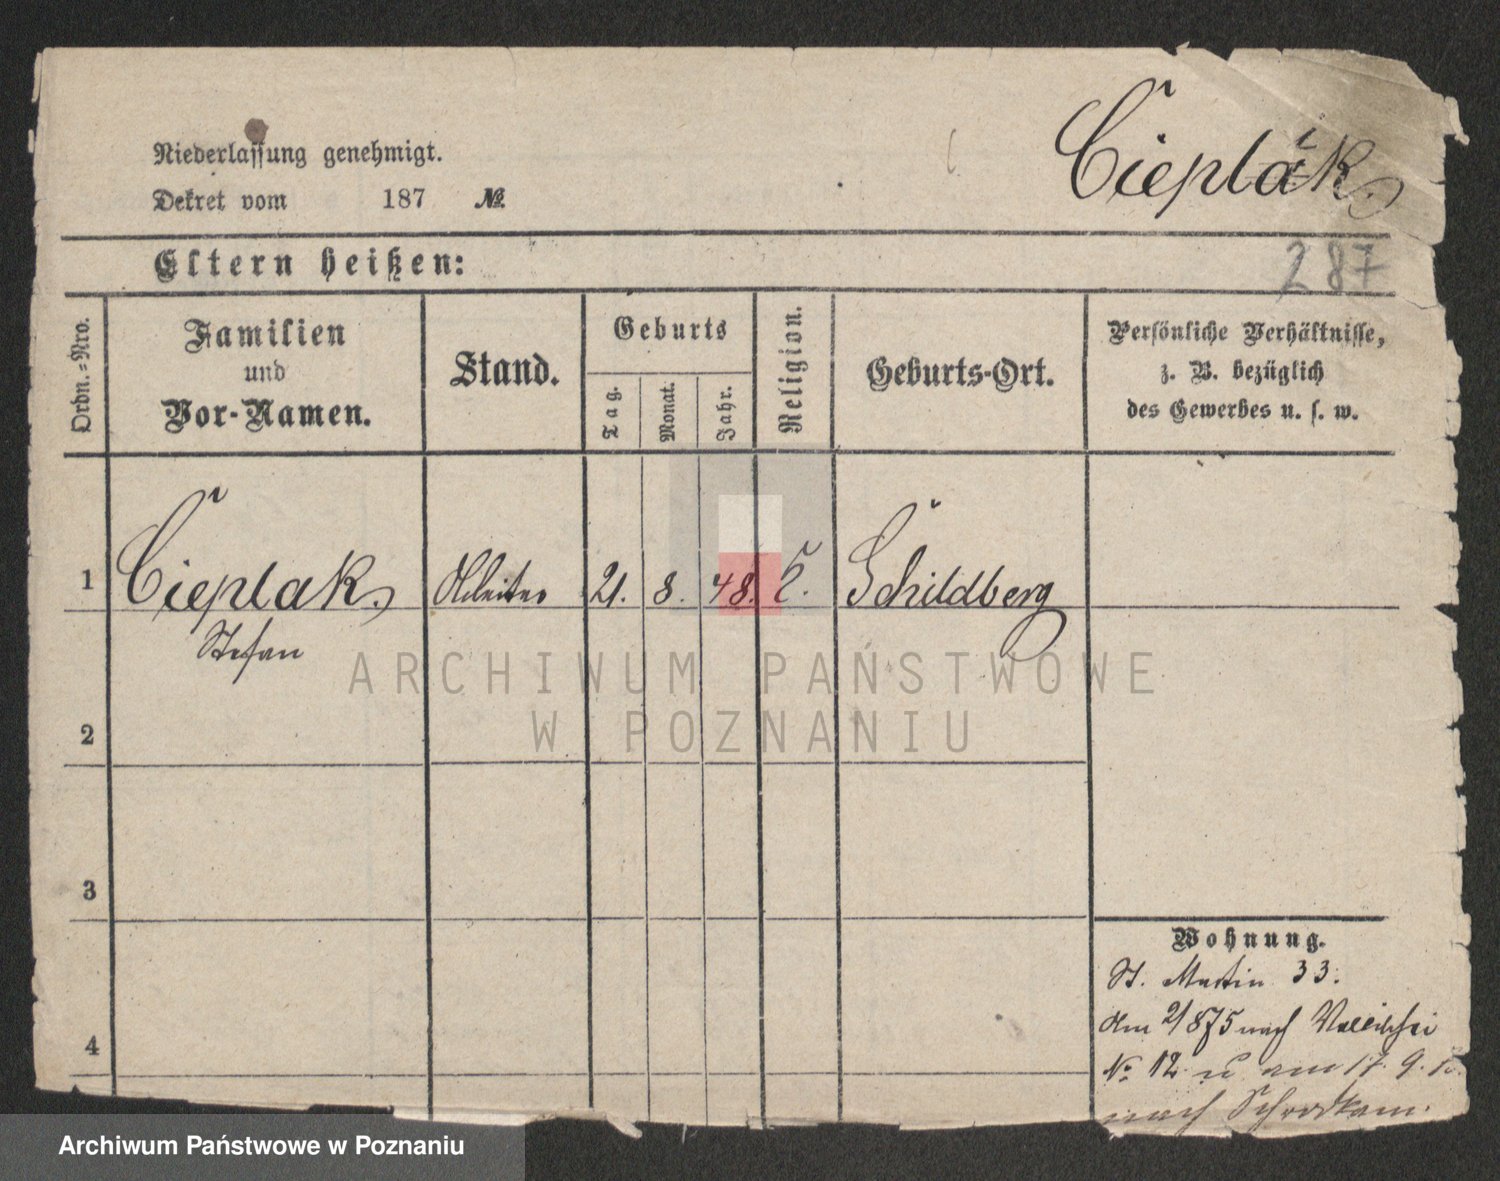 Cieplak
Niederlassung genehmigt.
Dekret vom 187 №
287
Eltern heißen:
Ordn.-Nro.
Familien
und
Vor-Namen.
Stand.
Geburts
Tag.
Monat.
Jahr.
Religion.
Geburts-Ort.
Persönliche Verhältnisse,
z. B. bezüglich
des Gewerbes u. s. w.
1 Cieplak 21. 8. 48. Schildberg
Stefan
ARCHIWUM PAŃSTWOWE
W POZNANIU
2
3
4
Wohnung.
St. Martin 33.
nach
№ 12 u am 17. 9.
nach
Archiwum Państwowe w Poznaniu